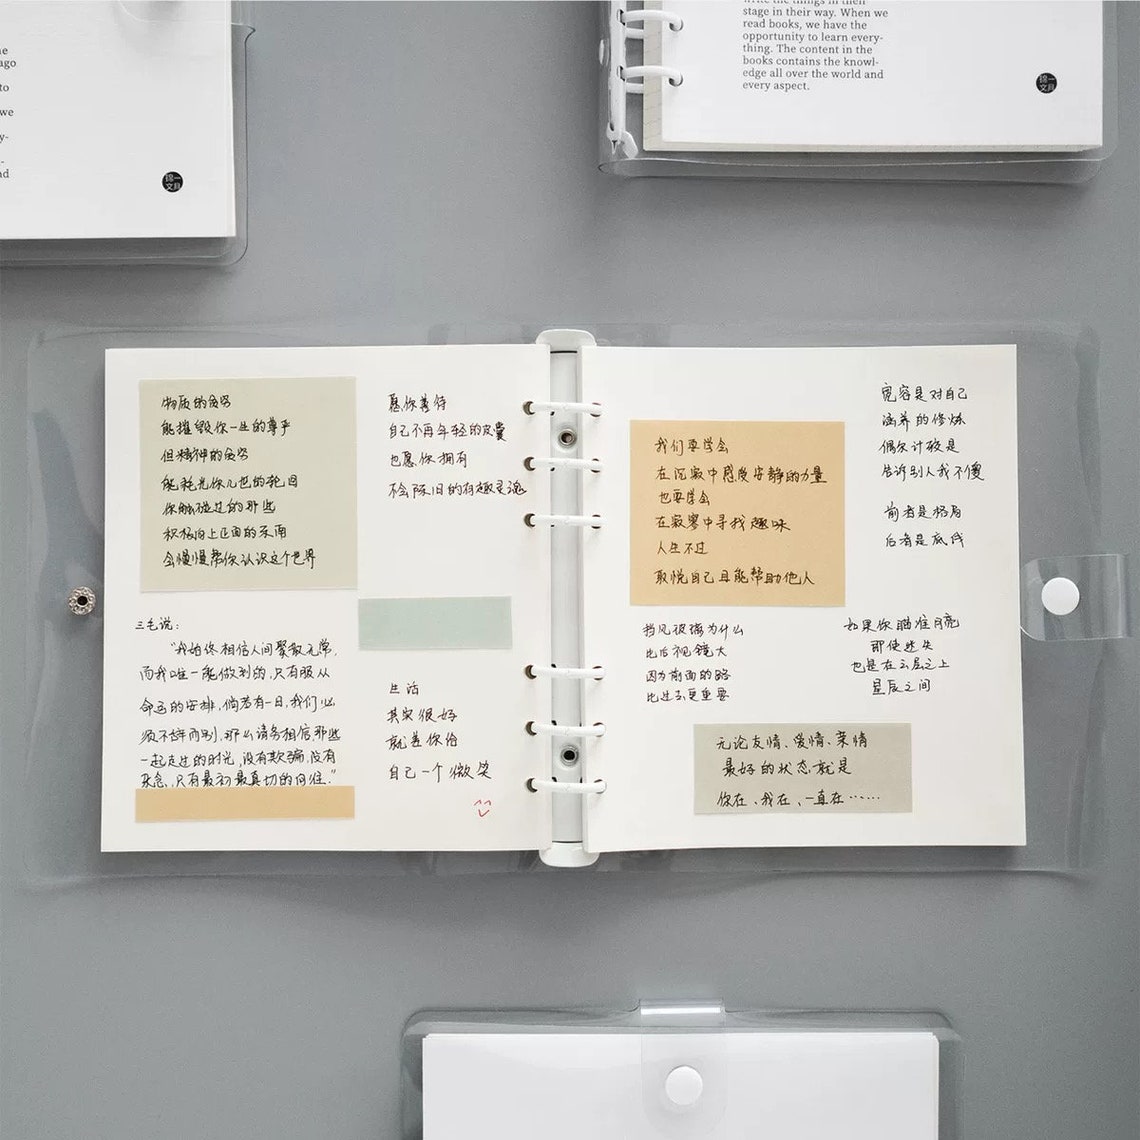 ago
to
we
y-
ad
锦一
文具
write the things in their
stage in their way. When we
read books, we have the
opportunity to learn every-
thing. The content in the
books contains the knowl-
edge all over the world and
every aspect.
锦一
文具
物质的贫穷
能摧毁你一生的尊严
但精神的贫穷
能耗光你几世的轮回
你触碰过的那些
积极向上正面的东西
会慢慢帮你认识这个世界
愿你善待
自己不再年轻的皮囊
也愿你拥有
不会陈旧的有趣灵魂
三毛说:
"我始终相信人间聚散无常,
而我唯一能做到的,只有服从
命运的安排,倘若有一日,我们必
须不辞而别,那么请务相信那些
一起走过的时光,没有欺骗,没有
杂念,只有最初最真切的向往."
生活
其实很好
就差你给
自己一个微笑
我们要学会
在沉寂中感度安静的力量
也要学会
在寂寥中寻找趣味
人生不过
取悦自己且能帮助他人
宽容是对自己
涵养的修炼
偶尔计较是
告诉别人我不傻
前者是格局
后者是底线
挡风玻璃为什么
比后视镜大
因为前面的路
比过去更重要
如果你瞄准月亮
即使迷失
也是在云层之上
星辰之间
无论友情、爱情、亲情
最好的状态就是
你在、我在、一直在……